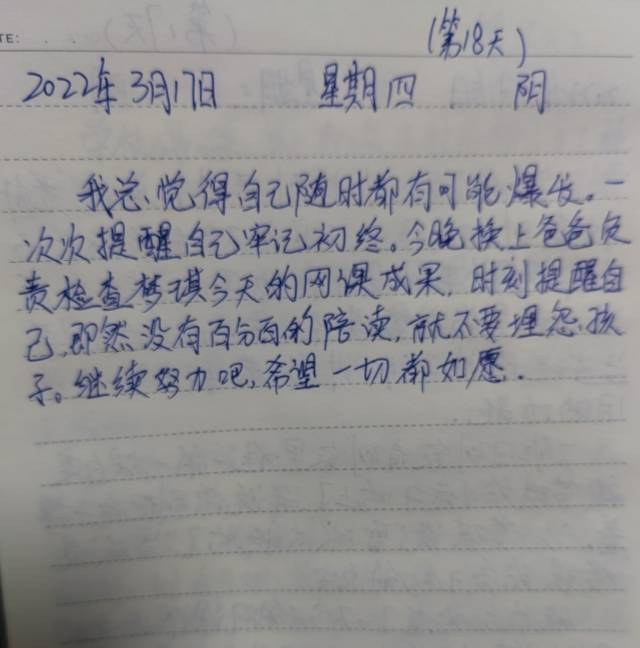 TE:
(第18天)
2022年3月17日 星期四 阴
我总觉得自己随时都有可能爆发。一
次次提醒自己牢记初终。今晚换上爸爸负
责检查梦琪今天的网课成果,时刻提醒自
己,即然没有百分百的陪读,就不要埋怨孩
子。继续努力吧,希望一切都如愿.